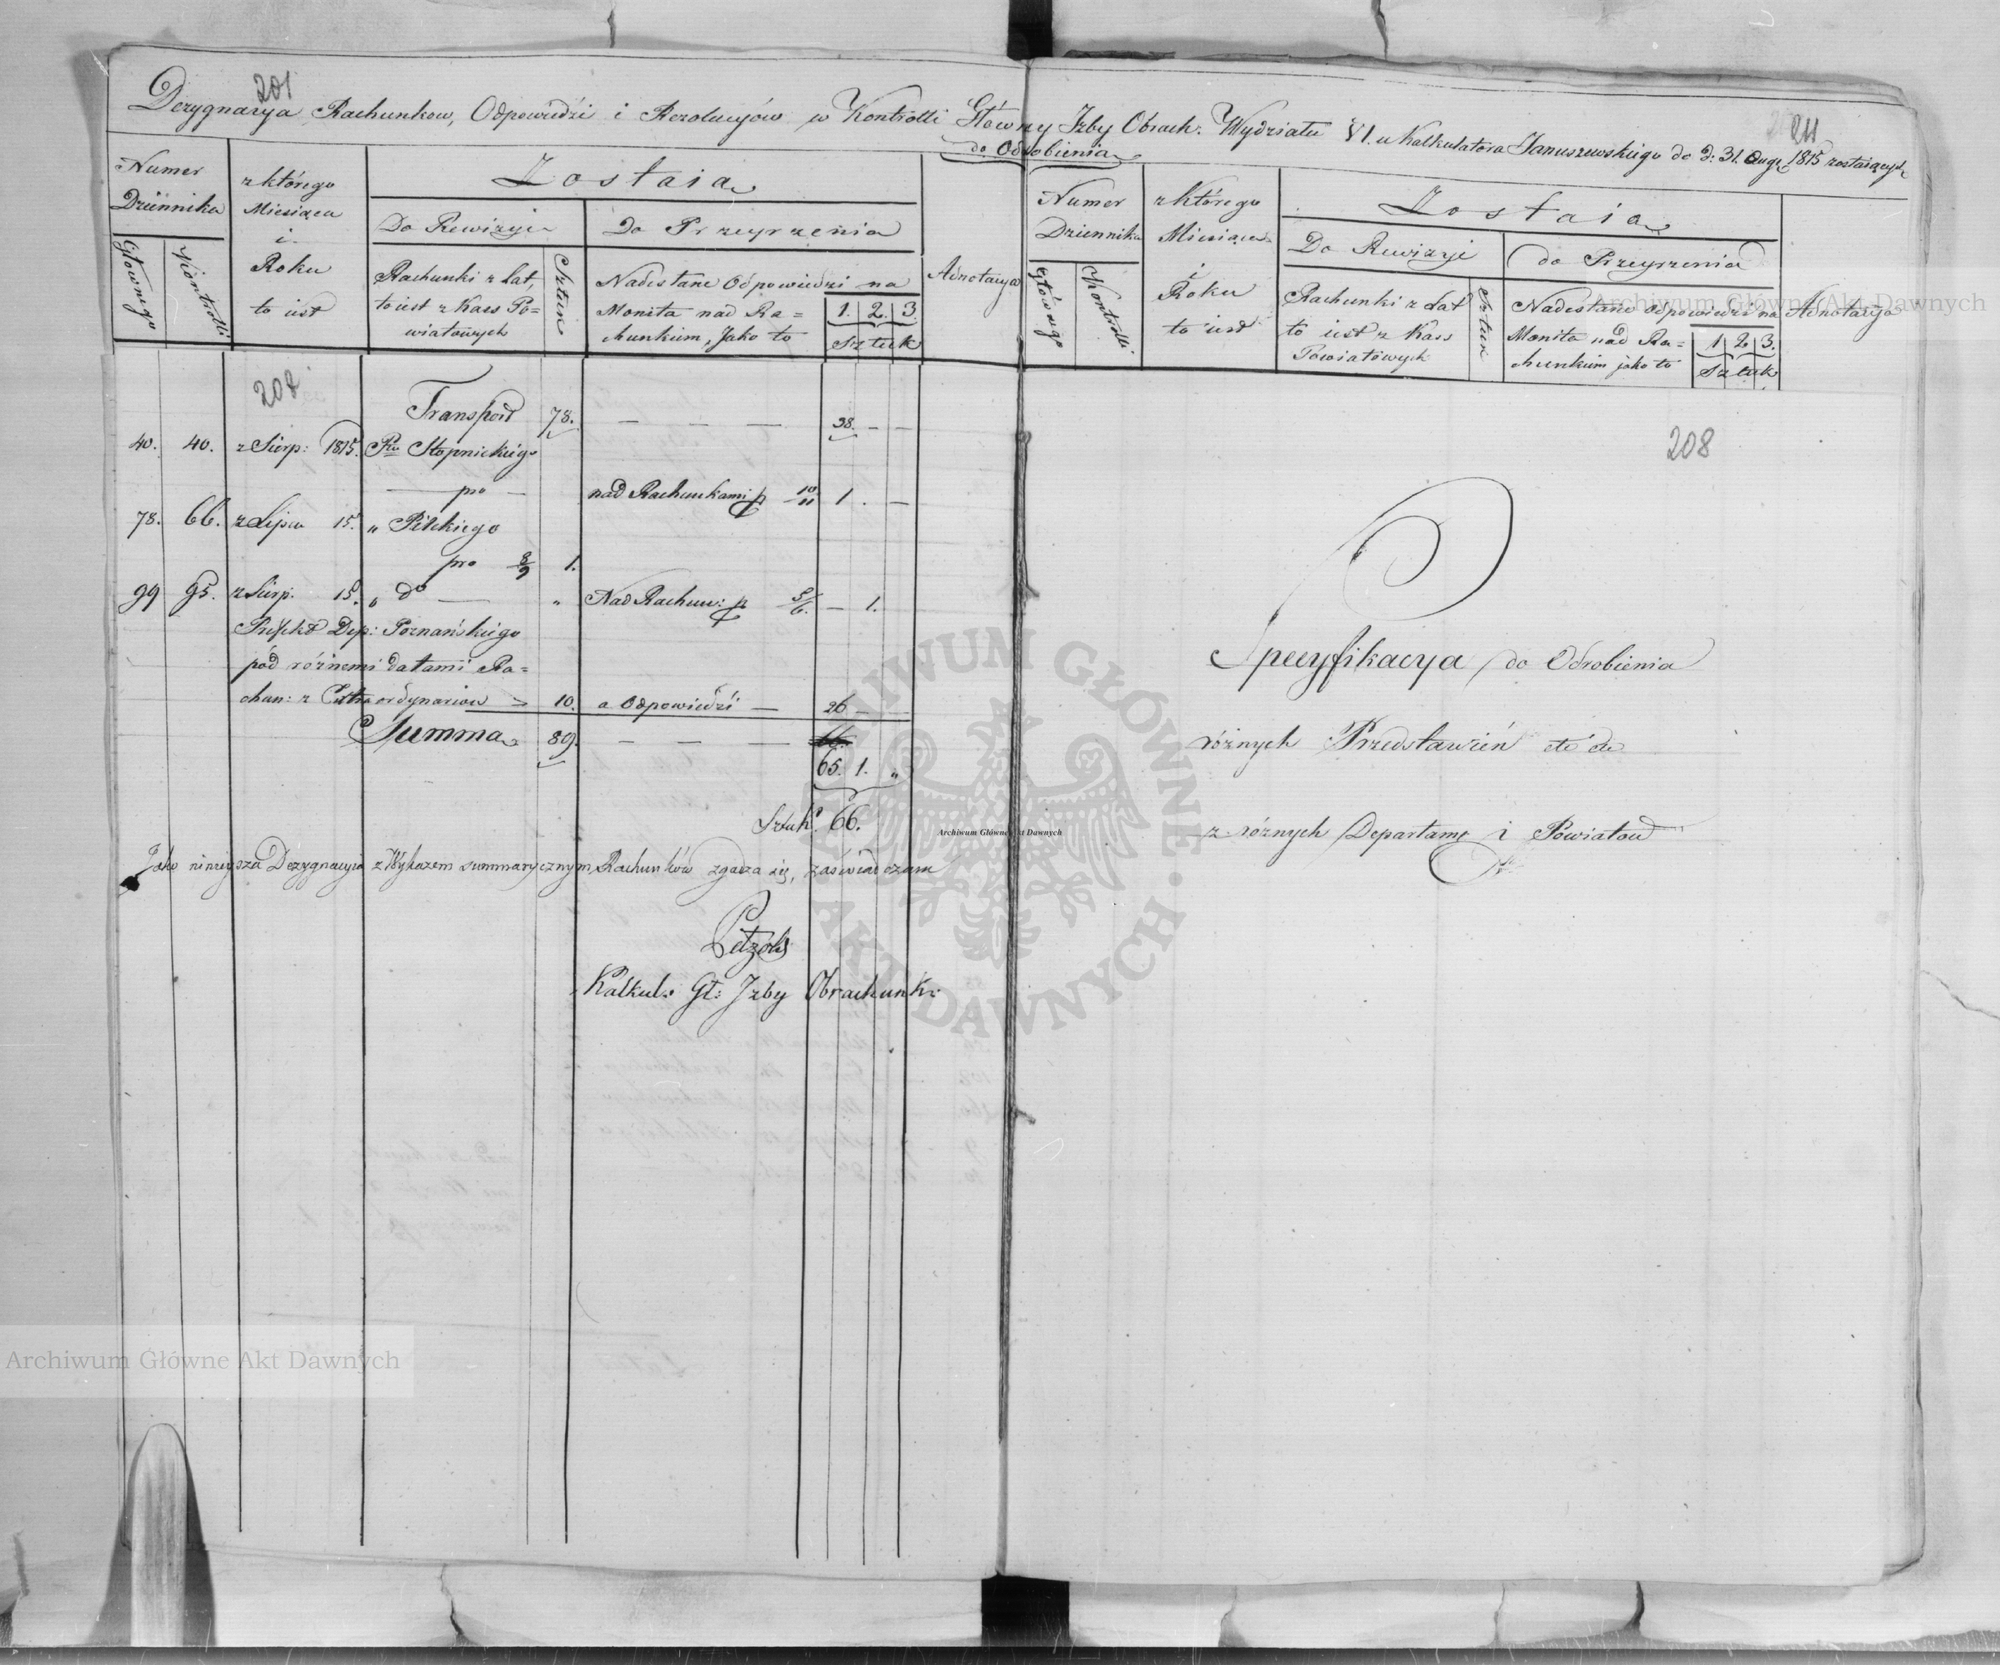 201
Dezygnacya Rachunkow, Odpowiedzi i Rezolucyów w Kontrolli Główney Izby Obrach: Wydziału VI. u Kalkulatora Januszewskiego do d: 31. Aug: 1815 zostaiących
do Odrobienia
211
Numer Dziennika
Głównego
Kontrolli
z którego
Miesiąca
i
Roku
to iest
Zostaia
Do Rewizyi
Do Przeyrzenia
Rachunki z lat,
to iest z Kass Po=
wiatowych
Sztuk
Nadesłane Odpowiedzi na
Monita nad Ra=
chunkiem, Jako to
1. 2. 3.
Sztuk
Adnotacya
Numer
Dziennika
Główngo
Kontrolli
z którego
Miesiąca
i
Roku
to iest
Zostaia
Do Rewizyi
do Przeyrzenia
Rachunki z lat
to iest z Kass
Powiatowych
Sztuk
Nadesłane odpowiedzi na
Monita nad Ra=
chunkiem jako to
1 2. 3.
Sztuk
Adnotacya
208
Transport 78. — — — 38. — —
40. 40. z Sierp: 1815. Ptu Stopnickiego
— pro — nad Rachunkami p 10/11 1. —
78. 66. z Lipca 15. „ Pilckiego
pro 8/9 1.
99 95. z Sierp. 15. „ do — „ Nad Rachun: p 5/6. — 1.
Prefekt Dep: Poznańskiego
pód różnemi datami Ra=
chun: z Extraordynariów 10. a Odpowiedzi — 26 —
Summa 89. — — —
65. 1. „
Sztuk 66.
Jako ninieysza Dezygnacyia z Wykazem summarycznym Rachunków zgadza się, zaświadczam
Petzold
Kalkul: Gł: Izby Obrachunk:
208
Specyfikacya do Odrobienia
różnych Przedstawień etc etc
z różnych Departamt i Powiatow
Archiwum Główne Akt Dawnych
Archiwum Główne Akt Dawnych
Archiwum Główne Akt Dawnych
ARCHIWUM GŁÓWNE · AKT DAWNYCH ·